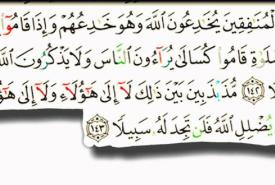 لمُنَٰفِقِينَ يُخَٰدِعُونَ ٱللَّهَ وَهُوَ خَٰدِعُهُمۡ وَإِذَا قَامُوٓاْ
لَوٰةِ قَامُواْ كُسَالَىٰ يُرَآءُونَ ٱلنَّاسَ وَلَا يَذۡكُرُونَ ٱللَّ
١٤٢ مُّذَبۡذَبِينَ بَيۡنَ ذَٰلِكَ لَآ إِلَىٰ هَٰٓؤُلَآءِ وَلَآ إِلَىٰ هَٰٓؤُ
يُضۡلِلِ ٱللَّهُ فَلَن تَجِدَ لَهُۥ سَبِيلٗا ١٤٣